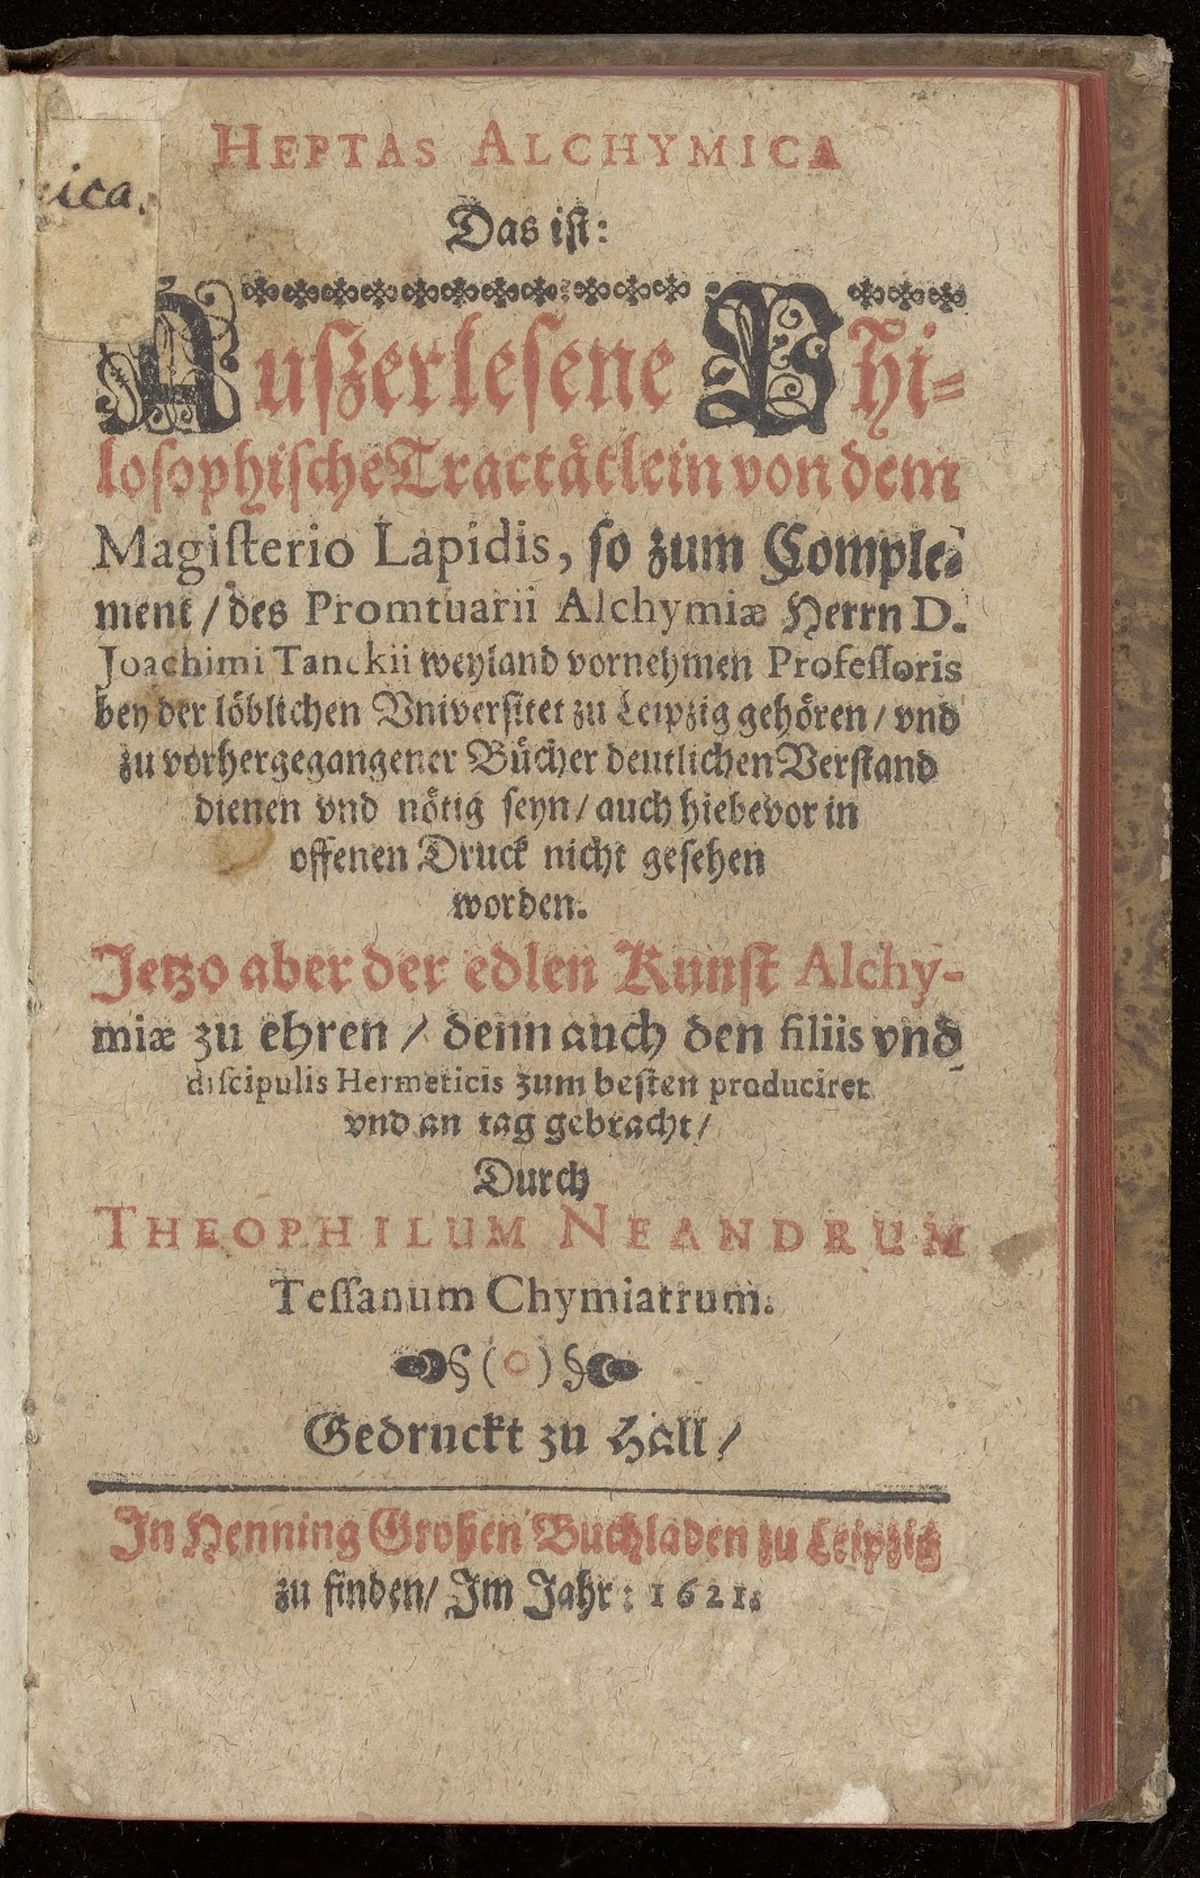 HEPTAS ALCHYMICA
ica.
Das ist:
Auſzerleſene Phi-
loſophiſche Tractaͤtlein von dem
Magiſterio Lapidis, ſo zum Comple-
ment / des Promtuarii Alchymiæ Herrn D.
Joachimi Tanckii weyland vornehmen Profeſſoris
bey der loͤblichen Vniverſitet zu Leipzig gehoͤren / vnd
zu vorhergegangener Buͤcher deutlichen Verſtand
dienen vnd noͤtig ſeyn / auch hiebevor in
offenen Druck nicht geſehen
worden.
Jetzo aber der edlen Kunſt Alchy-
miæ zu ehren / denn auch den filiis vnd
diſcipulis Hermeticis zum beſten produciret
vnd an tag gebracht /
Durch
THEOPHILUM NEANDRUM
Teſſanum Chymiatrum.
(O)
Gedruckt zu Hall /
In Henning Großen Buchladen zu Leipzig
zu finden / Im Jahr : 1621.